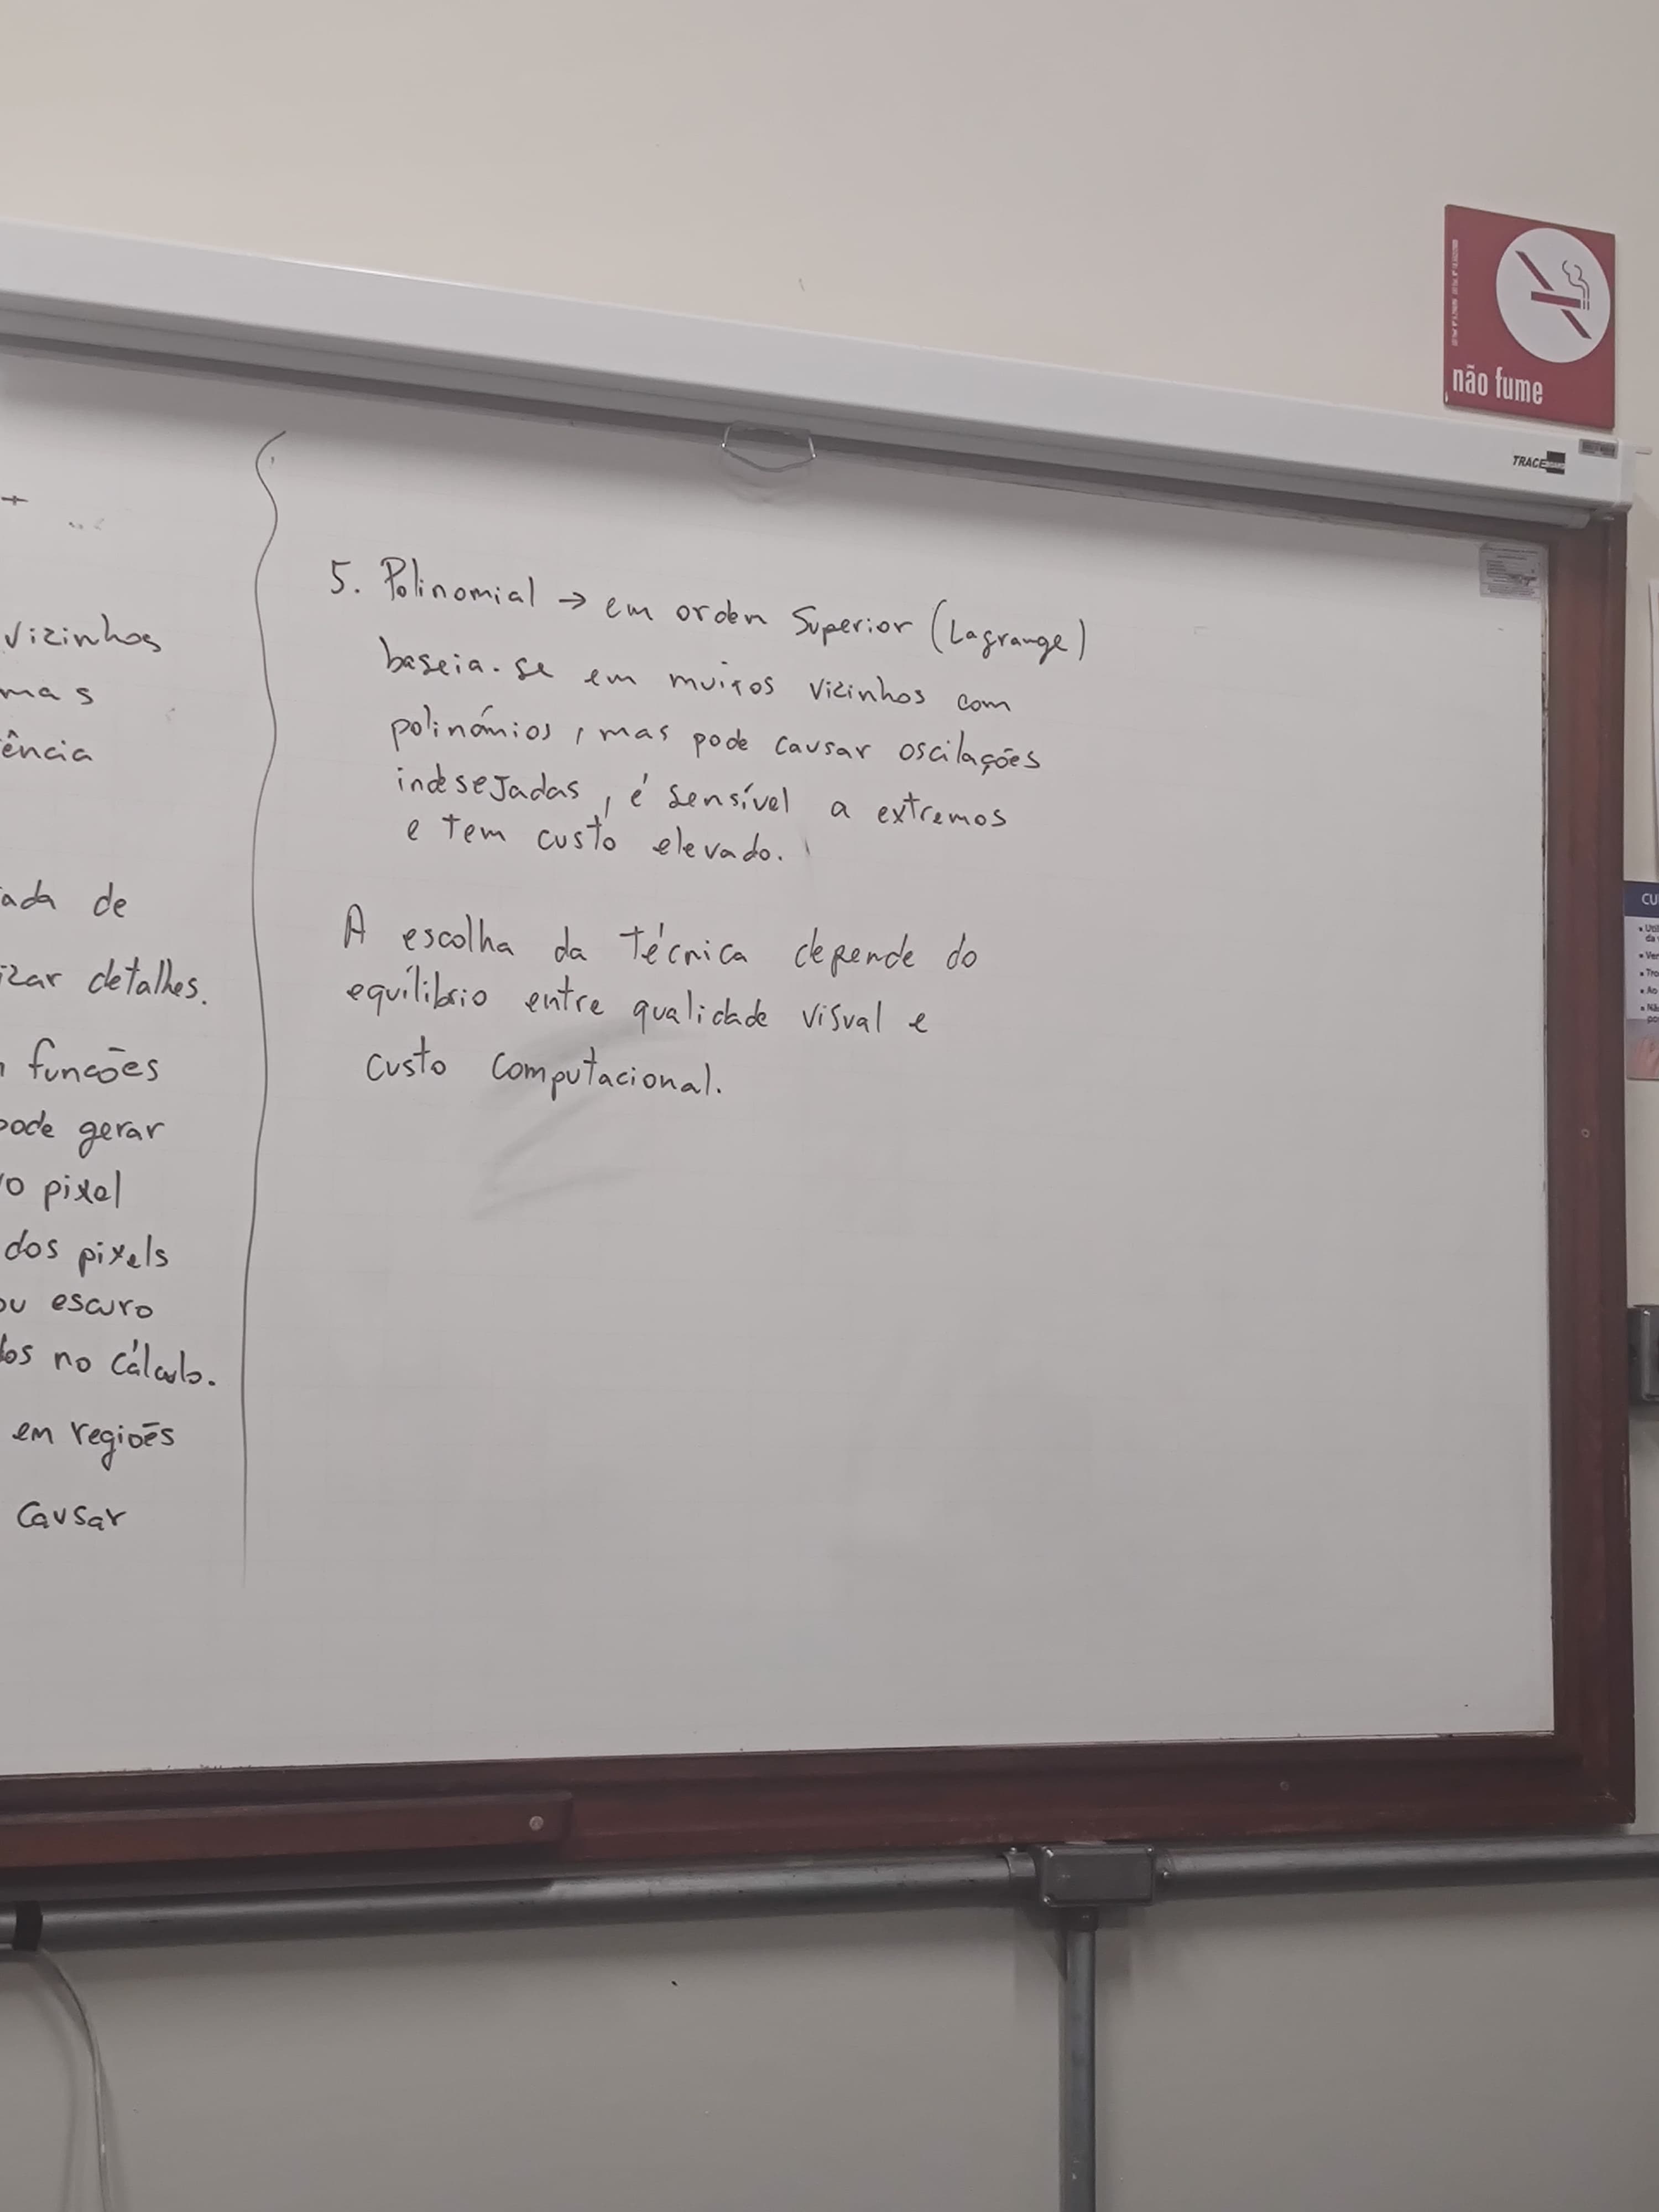 não fume
TRACE
+
vizinhos
mas
ência
ada de
izar detalhes.
funcões
pode gerar
o pixel
dos pixels
ou escuro
dos no cálculo.
em regiões
causar
5. Polinomial → em orden superior (Lagrange)
baseia-se em muitos vizinhos com
polinómios, mas pode causar oscilações
indesejadas, é sensível a extremos
e tem custo elevado.
A escolha da técnica depende do
equílibrio entre qualidade visual e
custo computacional.
CU
Util
da
Ver
Tro
Ao
Nã
po